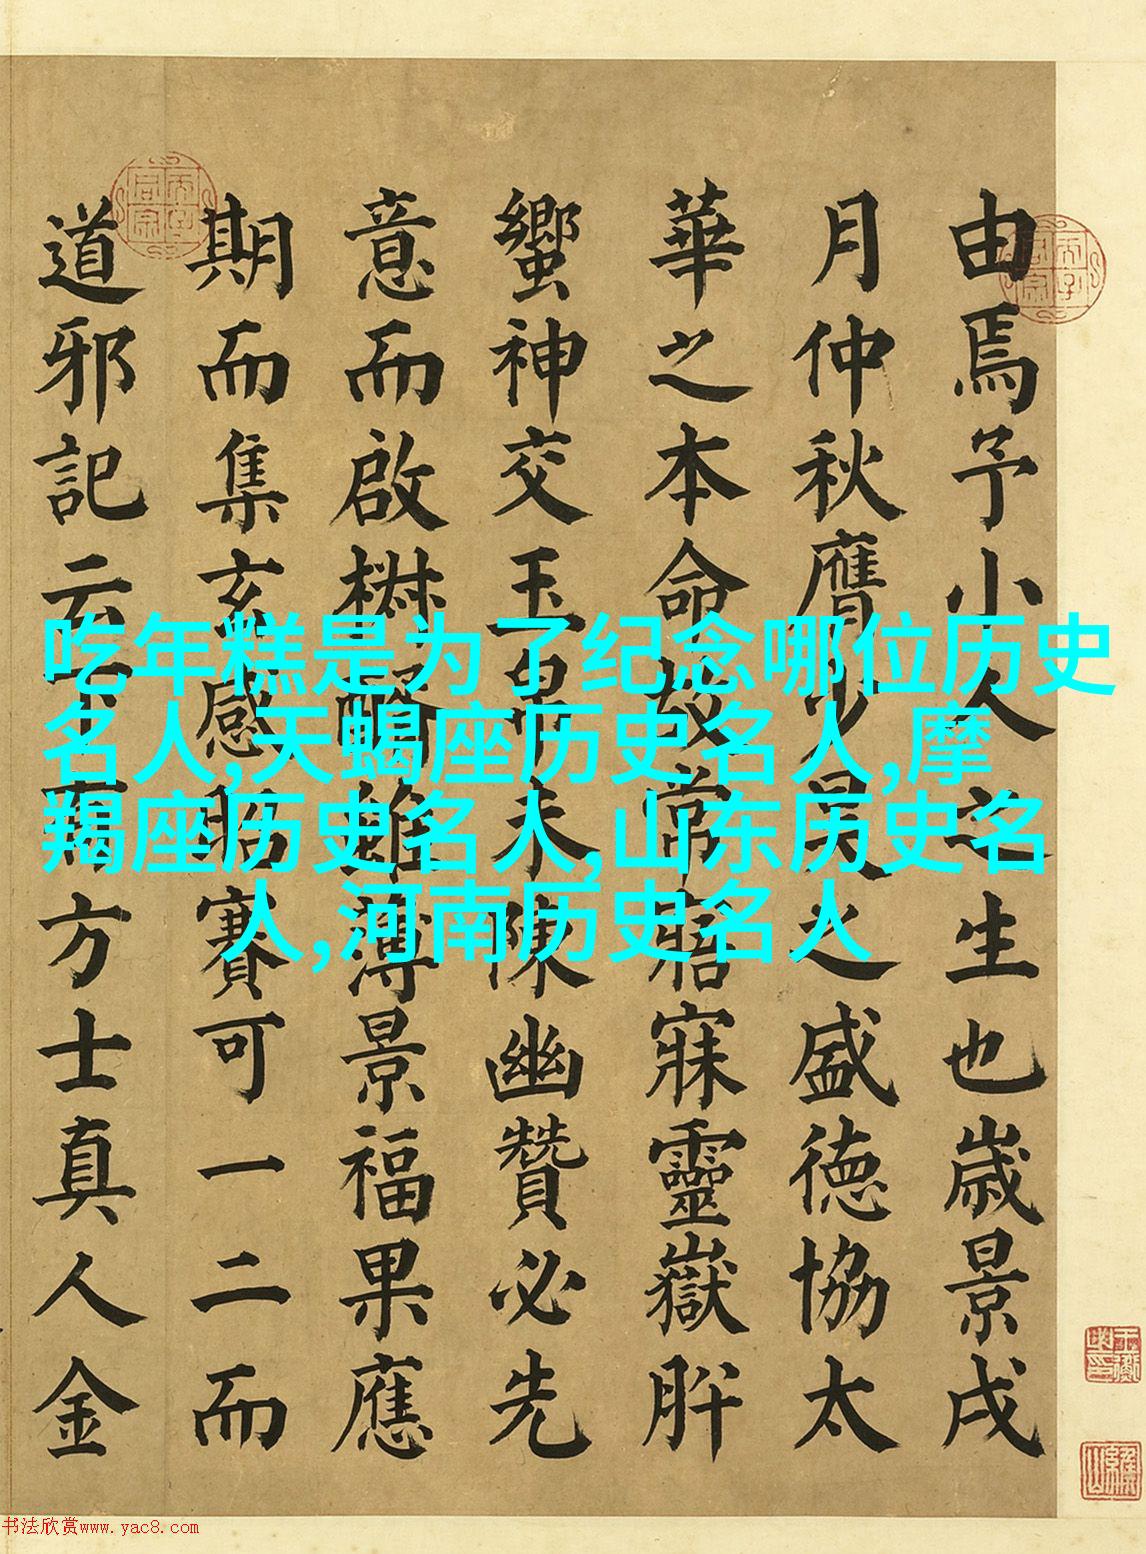 由焉予小人之生也歲景戌
月仲秋膺少昊之盛德協太
華之本命故常寤寐靈嶽肸
蠁神交玉帛未陳幽贊必先
意而啟椒醑雖薄景福果應
期而集玄感昭賽可一二而
道邪記云方士真人金
吃年糕是为了纪念哪位历史
名人,天蝎座历史名人,摩
羯座历史名人,山东历史名
人,河南历史名人
书法欣赏www.yac8.com